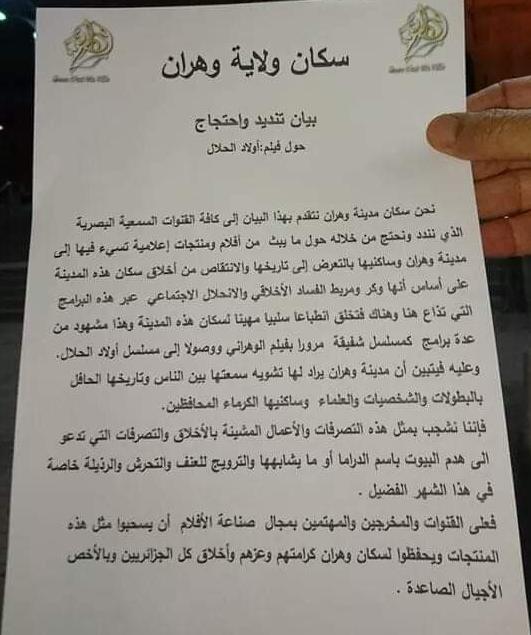 سكان ولاية وهران
بيان تنديد واحتجاج
حول فيلم:أولاد الحلال
نحن سكان مدينة وهران نتقدم بهذا البيان إلى كافة القنوات السمعية البصرية
الذي نندد ونحتج من خلاله حول ما يبث من أفلام ومنتجات إعلامية تسيء فيها إلى
مدينة وهران وساكنيها بالتعرض إلى تاريخها والانتقاص من أخلاق سكان هذه المدينة
على أساس أنها وكر ومربط الفساد الأخلاقي والانحلال الاجتماعي عبر هذه البرامج
التي تذاع هنا وهناك فتخلق انطباعا سلبيا مهينا لسكان هذه المدينة وهذا مشهود من
عدة برامج كمسلسل شفيقة مرورا بفيلم الوهراني ووصولا إلى مسلسل أولاد الحلال.
وعليه فيتبين أن مدينة وهران يراد لها تشويه سمعتها بين الناس وتاريخها الحافل
بالبطولات والشخصيات والعلماء وساكنيها الكرماء المحافظين.
فإننا نشجب بمثل هذه التصرفات والأعمال المشينة بالأخلاق والتصرفات التي تدعو
الى هدم البيوت باسم الدراما أو ما يشابهها والترويج للعنف والتحرش والرذيلة خاصة
في هذا الشهر الفضيل .
فعلى القنوات والمخرجين والمهتمين بمجال صناعة الأفلام أن يسحبوا مثل هذه
المنتجات ويحفظوا لسكان وهران كرامتهم وعزهم وأخلاق كل الجزائريين وبالأخص
الأجيال الصاعدة .